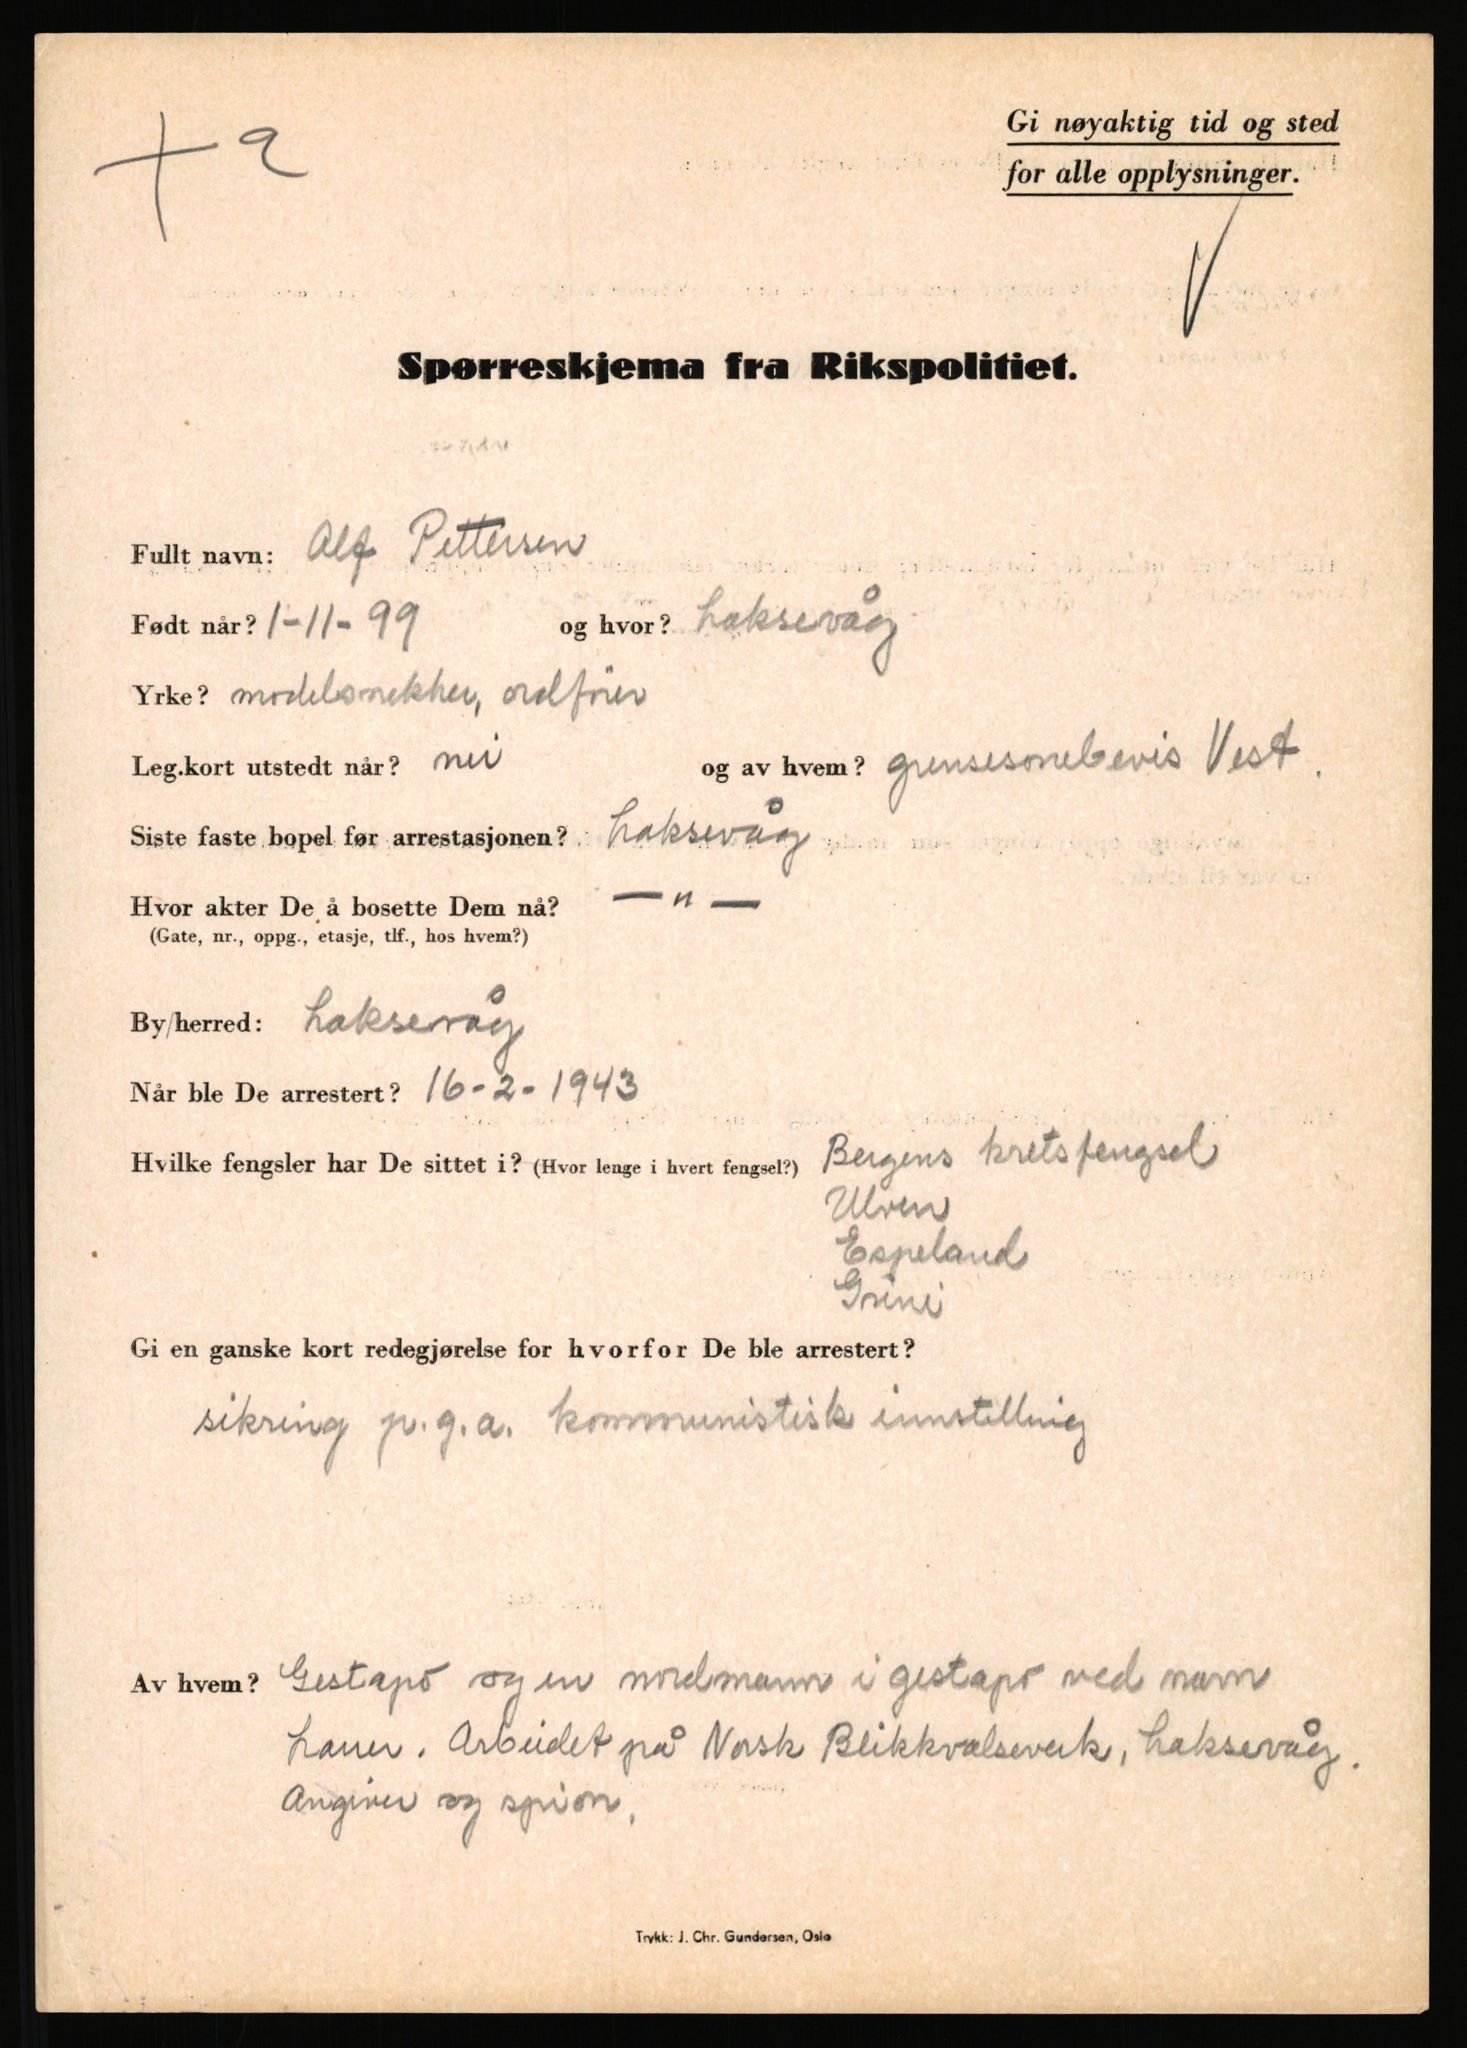 + a
Gi nøyaktig tid og sted
for alle opplysninger.
Spørreskjema fra Rikspolitiet.
Fullt navn: Alf Pettersen
Født når? 1-11-99 og hvor? Laksevåg
Yrke? modelsnekker, ordfører
Leg.kort utstedt når? nei og av hvem? grensesonebevis Vest.
Siste faste bopel før arrestasjonen? Laksevåg
Hvor akter De å bosette Dem nå? —"—
(Gate, nr., oppg., etasje, tlf., hos hvem?)
By/herred: Laksevåg
Når ble De arrestert? 16-2-1943
Hvilke fengsler har De sittet i? (Hvor lenge i hvert fengsel?) Bergens kretsfengsel
Ulven
Espeland
Grini
Gi en ganske kort redegjørelse for hvorfor De ble arrestert?
sikring p.g.a. kommunistisk innstilling
Av hvem? Gestapo og en nordmann i gestapo ved navn
. Arbeidet på Norsk Blikkvalseverk, Laksevåg.
Angiver og spion.
Trykk: J. Chr. Gundersen, Oslo